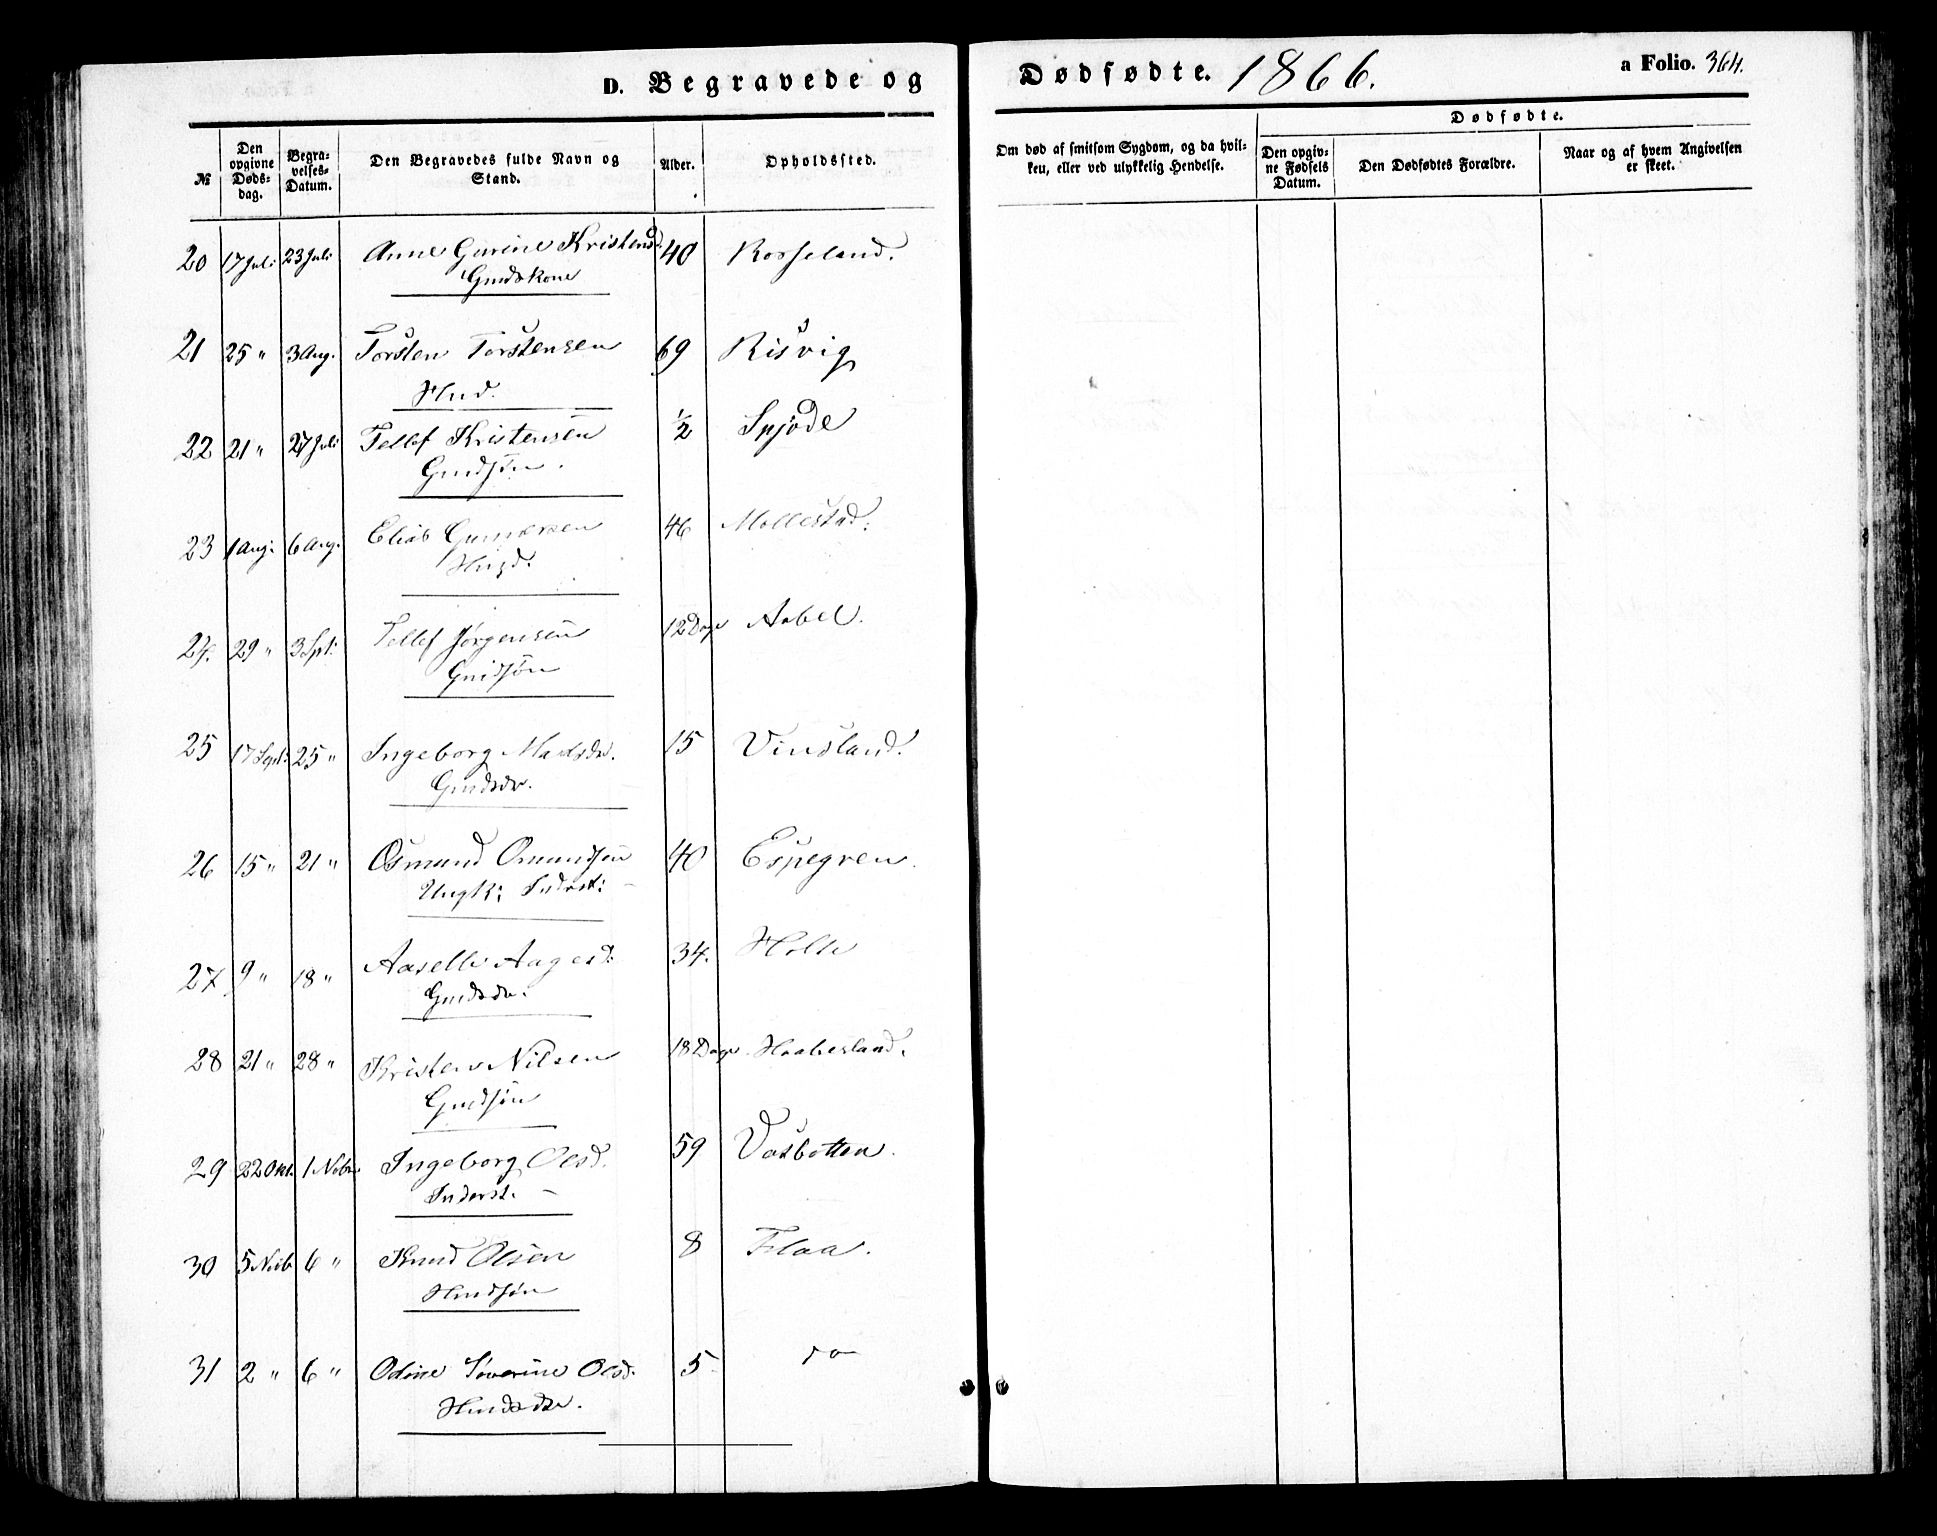 D. Begravede og Dødfødte. 1866. a Folio. 364.
№
Den opgivne Døds-dag.
Begra-velses-Datum.
Den Begravedes fulde Navn og Stand.
Alder.
Opholdssted.
Om død af smitsom Sygdom, og da hvil-ken, eller ved ulykkelig Hendelse.
Dødfødte.
Den opgiv-ne Fødsels Datum.
Den Dødfødtes Forældre.
Naar og af hvem Angivelsen er skeet.
20 17 Juli 23 Juli Anne Gurine Kristensd. 40 Rosseland.
Gmdskone
21 25 " 3 Aug. Torsten Torstensen 69 Risvig
Hmd.
22 21 " 27 Juli Tellef Kristensen 1/2 Spjode
Gmdsøn.
23 1 Aug. 6 Aug. Elias Gunersen 46 Mollestad.
24. 29 " 3 Spt: Tellef Jørgensen 12 Dage Aabel.
Gmdsøn
25 17 Sept: 25 " Ingeborg Madsdr. 15 Vindsland.
Gmdsdr.
26 15 " 21 " Osmund Omundsen 40 Espegren.
Ungk: Inderst:
27 9 " 18 " Aaselle Aagesd: 34. Holte
Gmdsdr.
28 21 " 28 " Kristen Nilsen 18 Dage Haabesland.
Gmdsøn
29 22 Okt. 1 Nobr. Ingeborg Olsd. 59 Vasbotten.
Inderst. —
30 5 Nob 6 " Knud Olsen 8 Flaa.
Hmdsøn
31 2 " 6 " Odine Severine Olsd. 5 do
Hmdsdr.